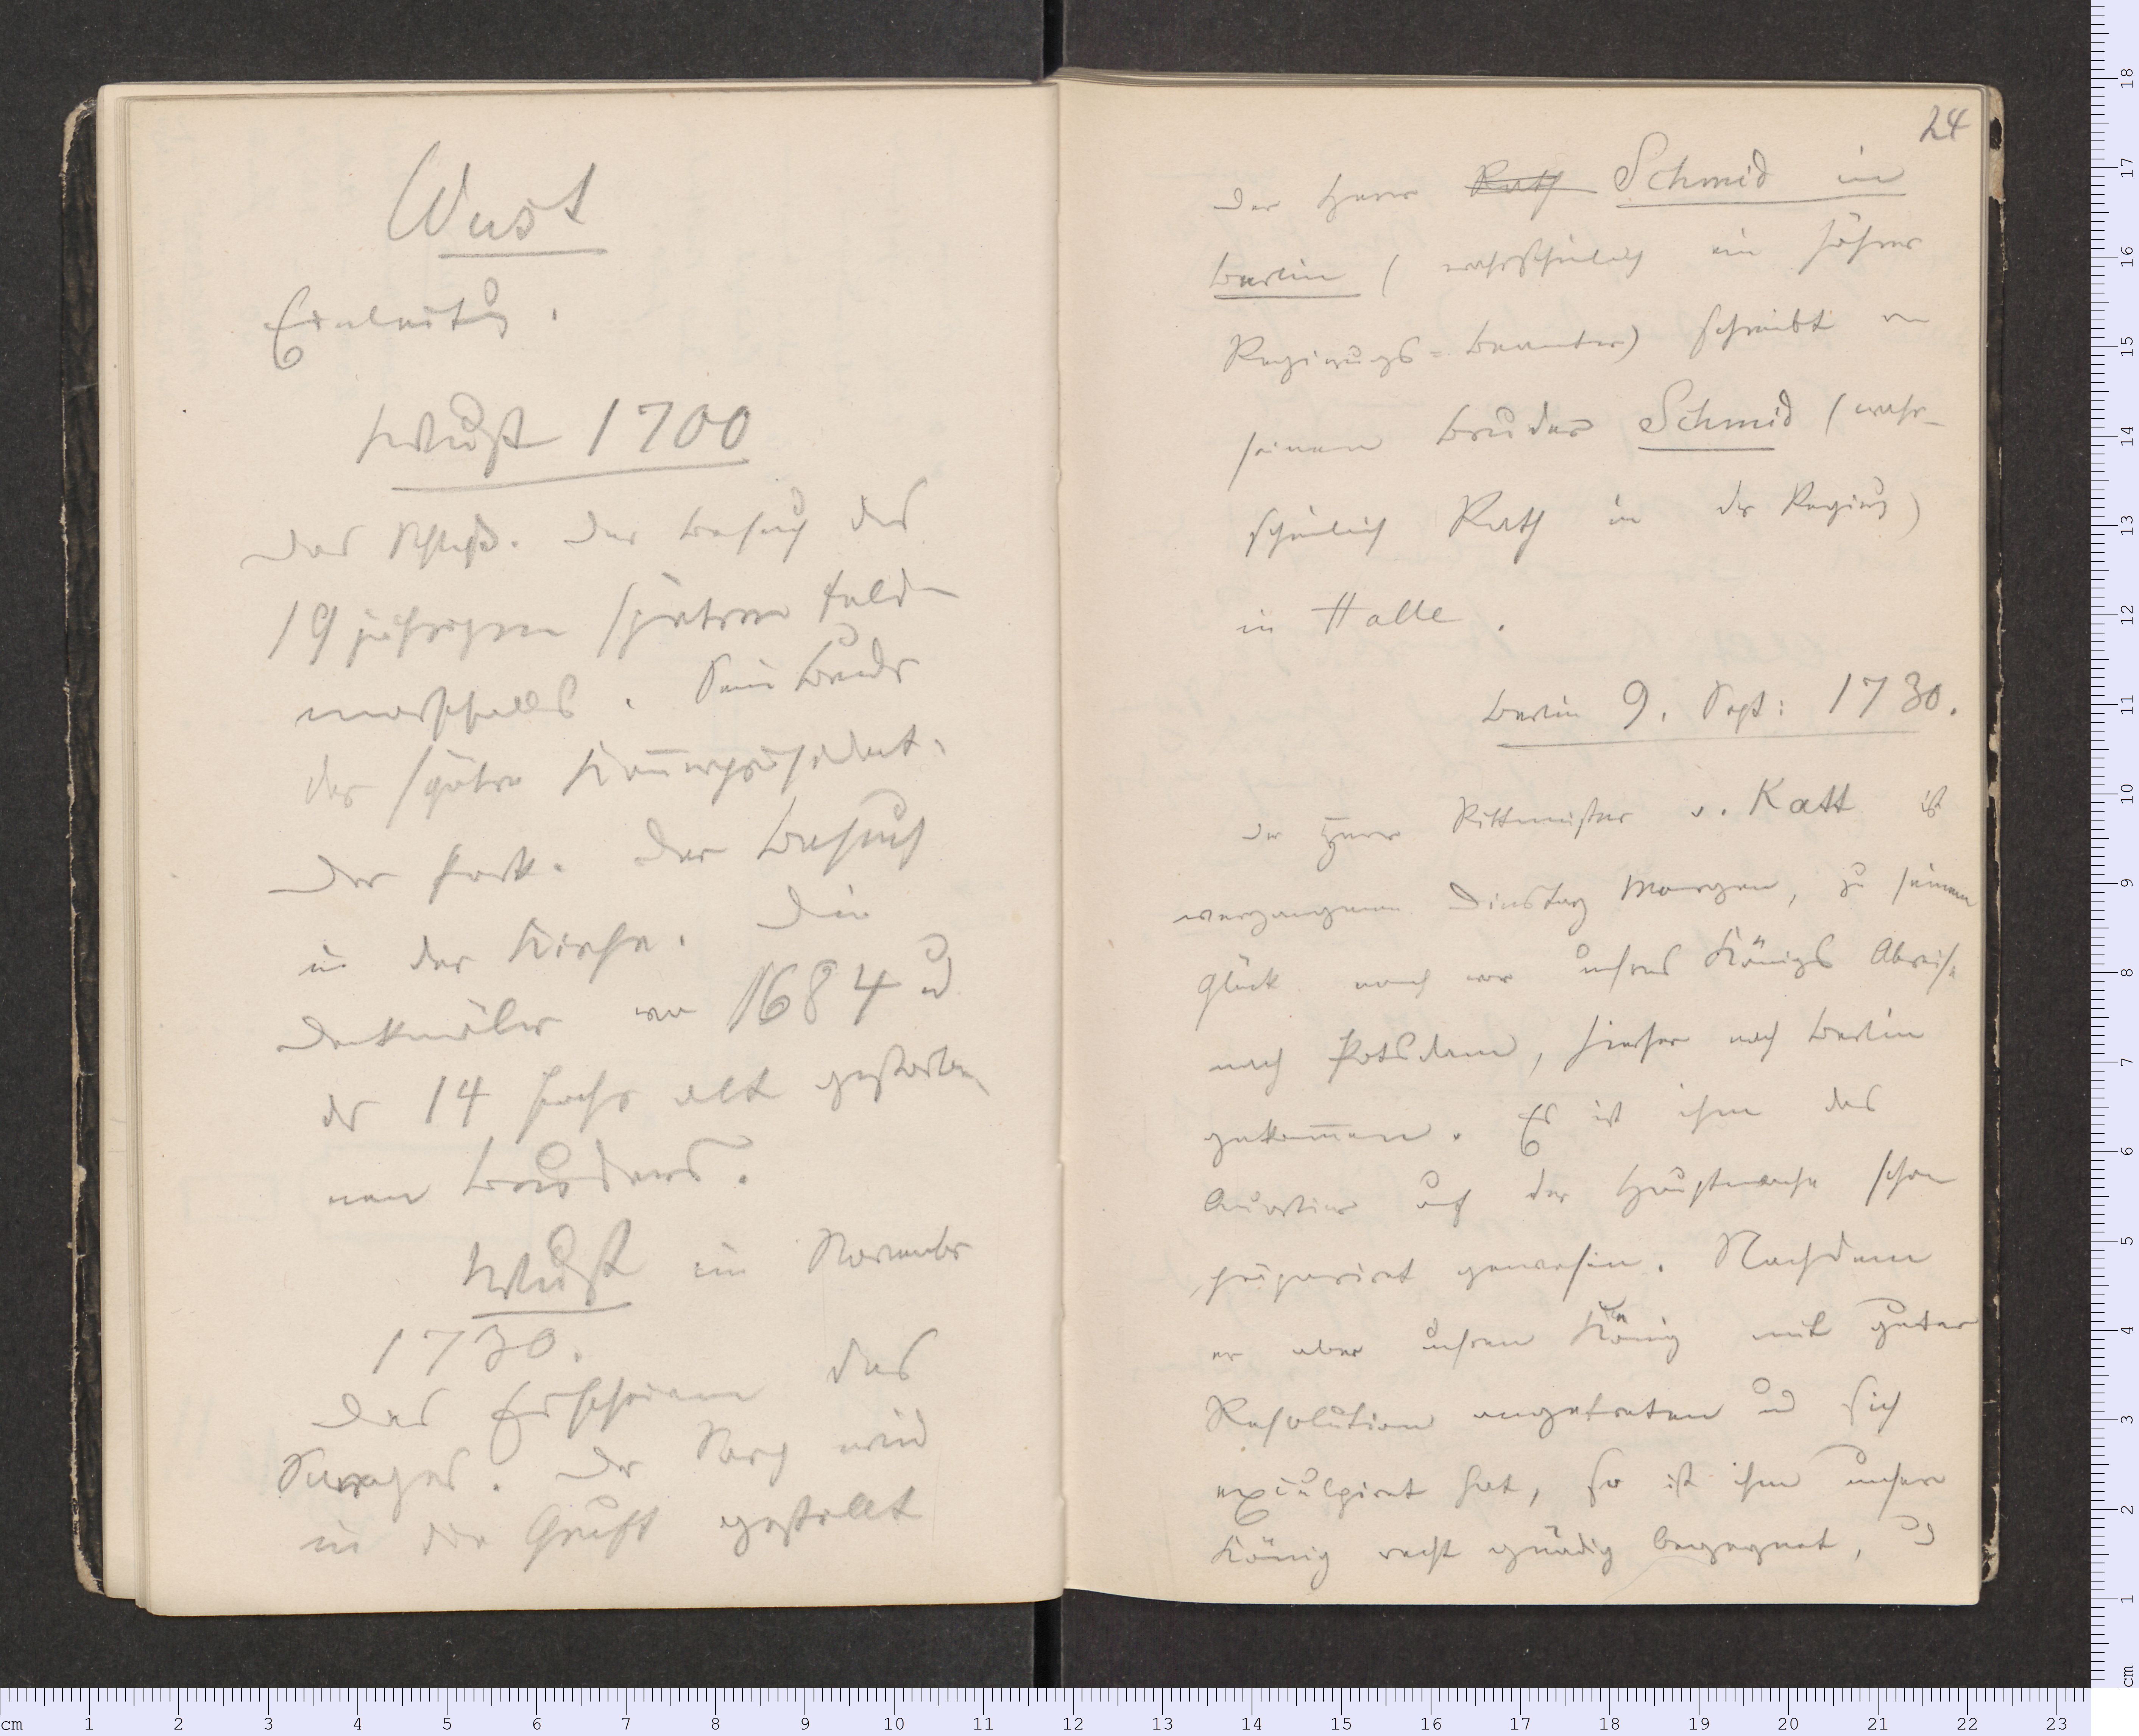 Wust
Einleitung.
Wust 1700
Das Schloß. Der Besuch des
19 jährigen späteren Feld-
marschalls. Sein Bruder
der spätre Kam̄erpräsident.
Der Park. Der Besuch
in der Kirche. Die
Denkmäler von 1684 u
der 14 Jahr alt gestorbe-
nen Bruders.
Wust im November
1730.
Das Erscheinen des
Sarges. Der Sarg wird
in die Gruft gestellt
24
Der Herr Rath Schmid in
Berlin (wahrscheinlich ein höherer
Regierungs-Beamter) schreibt an
seinen Bruder Schmid (wahr-
scheinlich Rath in der Regierung)
in Halle.
Berlin 9. Sept: 1730.
Der Herr Rittmeister v. Katt ist
vergangenen Dinstag Morgen, zu seinem
Glück noch vor unsres Königs Abreise
nach Potsdam, hierher nach Berlin
gekom̄en. Es ist ihm das
Quartier auf der Hauptwache schon
präparirt gewesen. Nachdem
er aber unsren König mit guter
Resolution angetreten u sich
exculpirt hat, so ist ihm unser
König recht gnädig begegnet, u